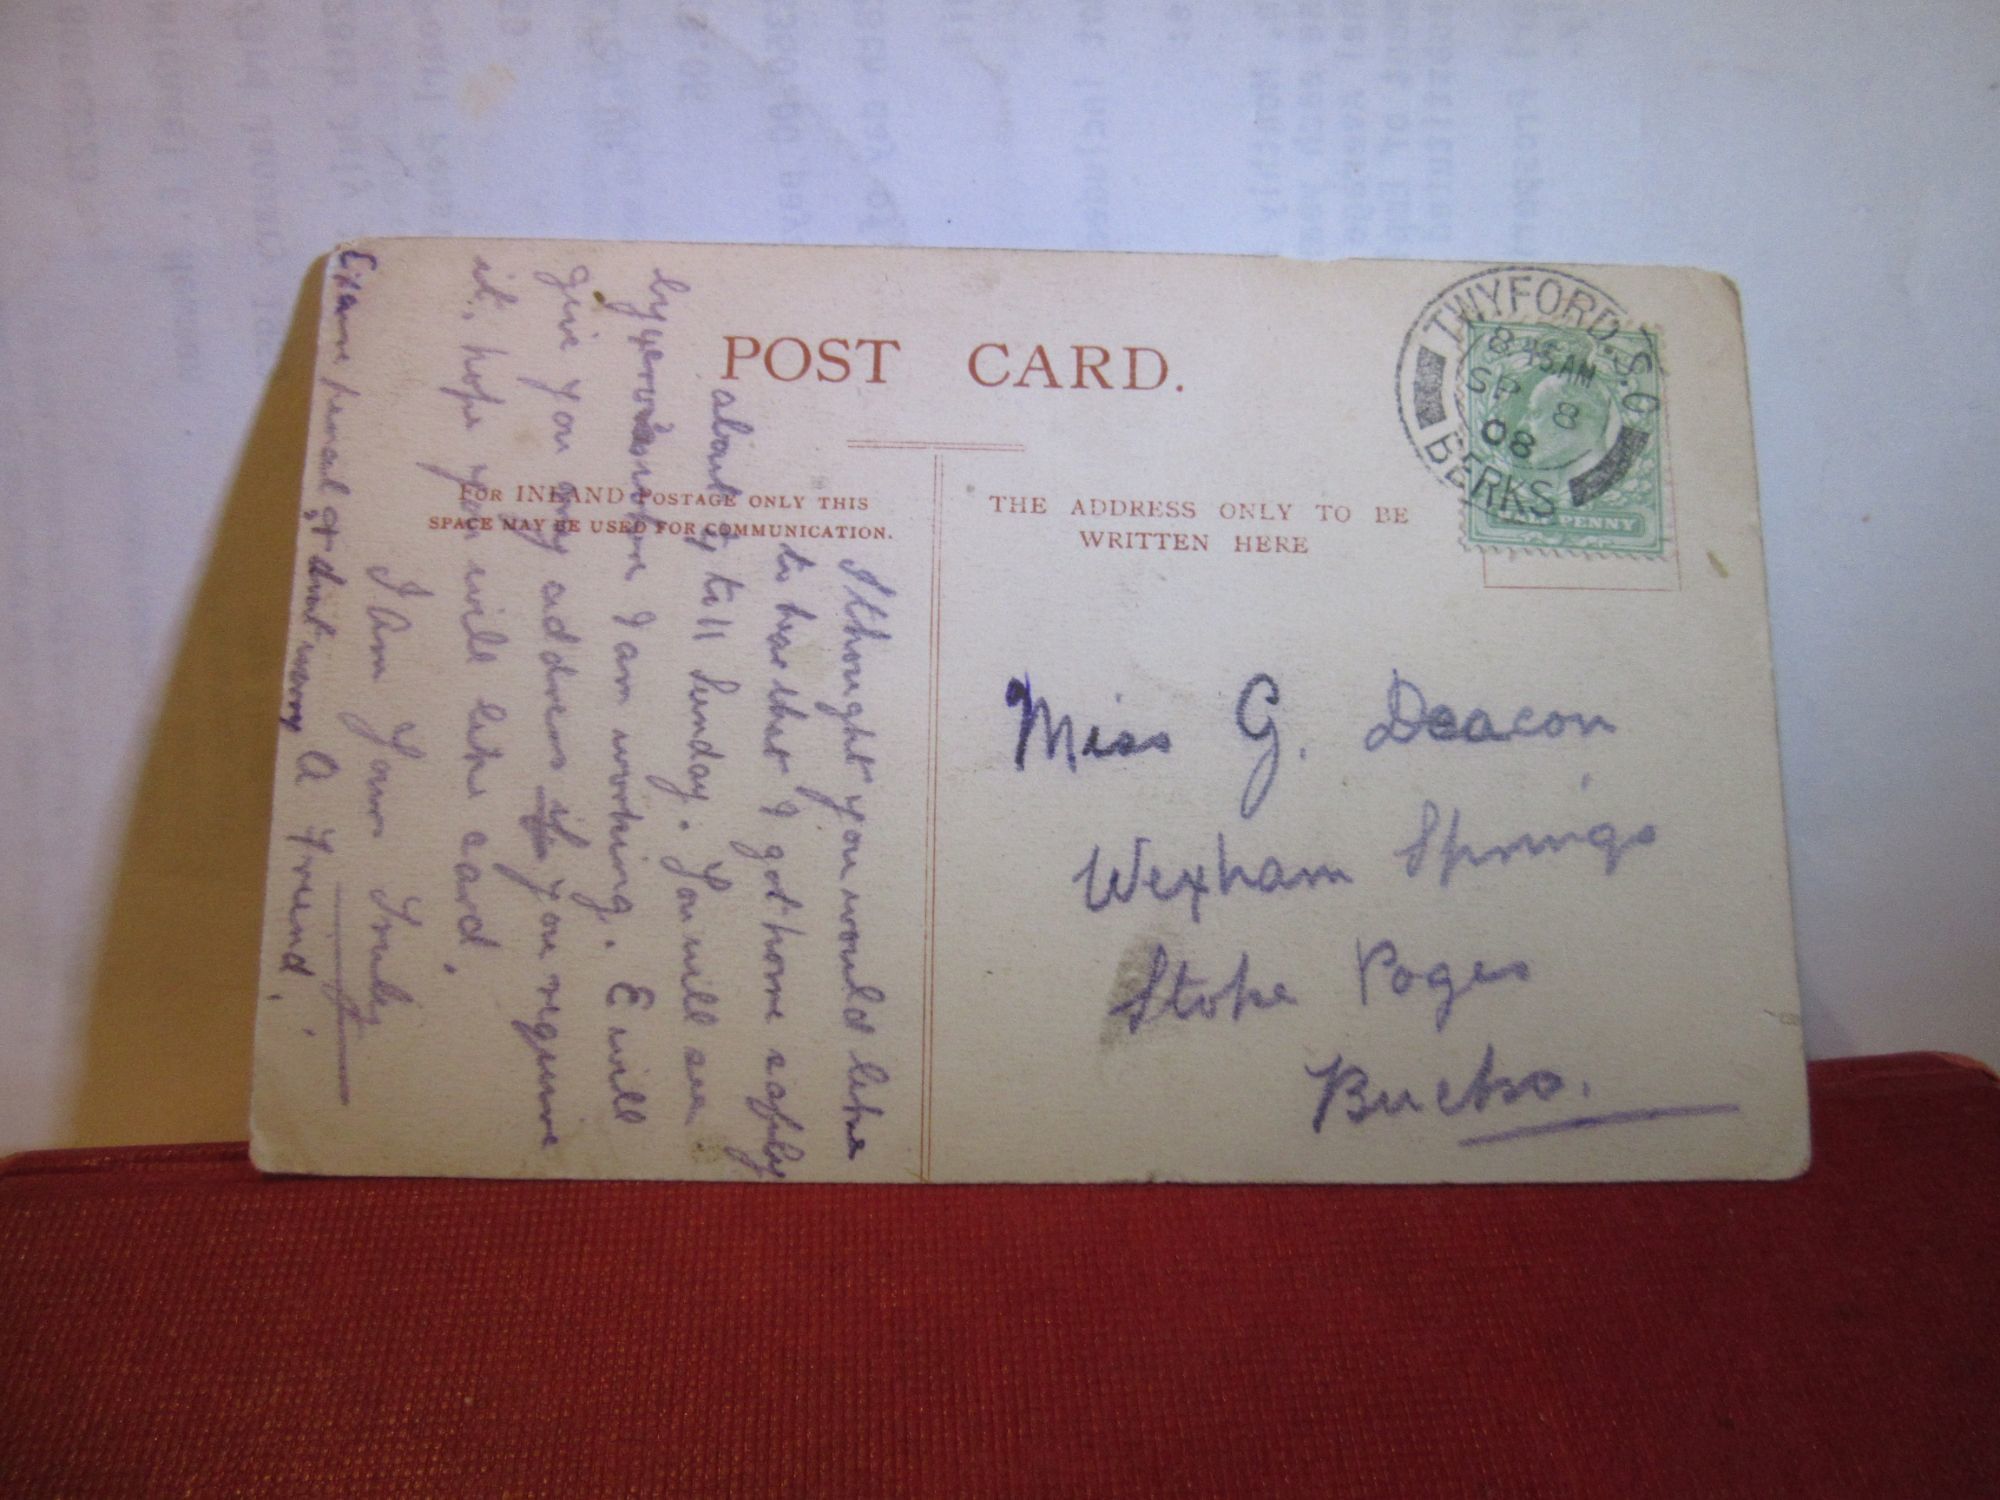 POST CARD.
FOR INLAND POSTAGE ONLY THIS
SPACE MAY BE USED FOR COMMUNICATION.
THE ADDRESS ONLY TO BE
WRITTEN HERE
TWYFORD. S.O
8 45 AM
SP 8
08
BERKS
HALFPENNY
Miss G. Deacon
Wexham Springs
Stoke Poges
Bucks.
I thought you would like
to hear that I got home safely
about till Sunday. You will see
by where I am working. I will
give you my address if you require
it, hope you will like card.
I Am Yours Truly
A Friend.
pencil